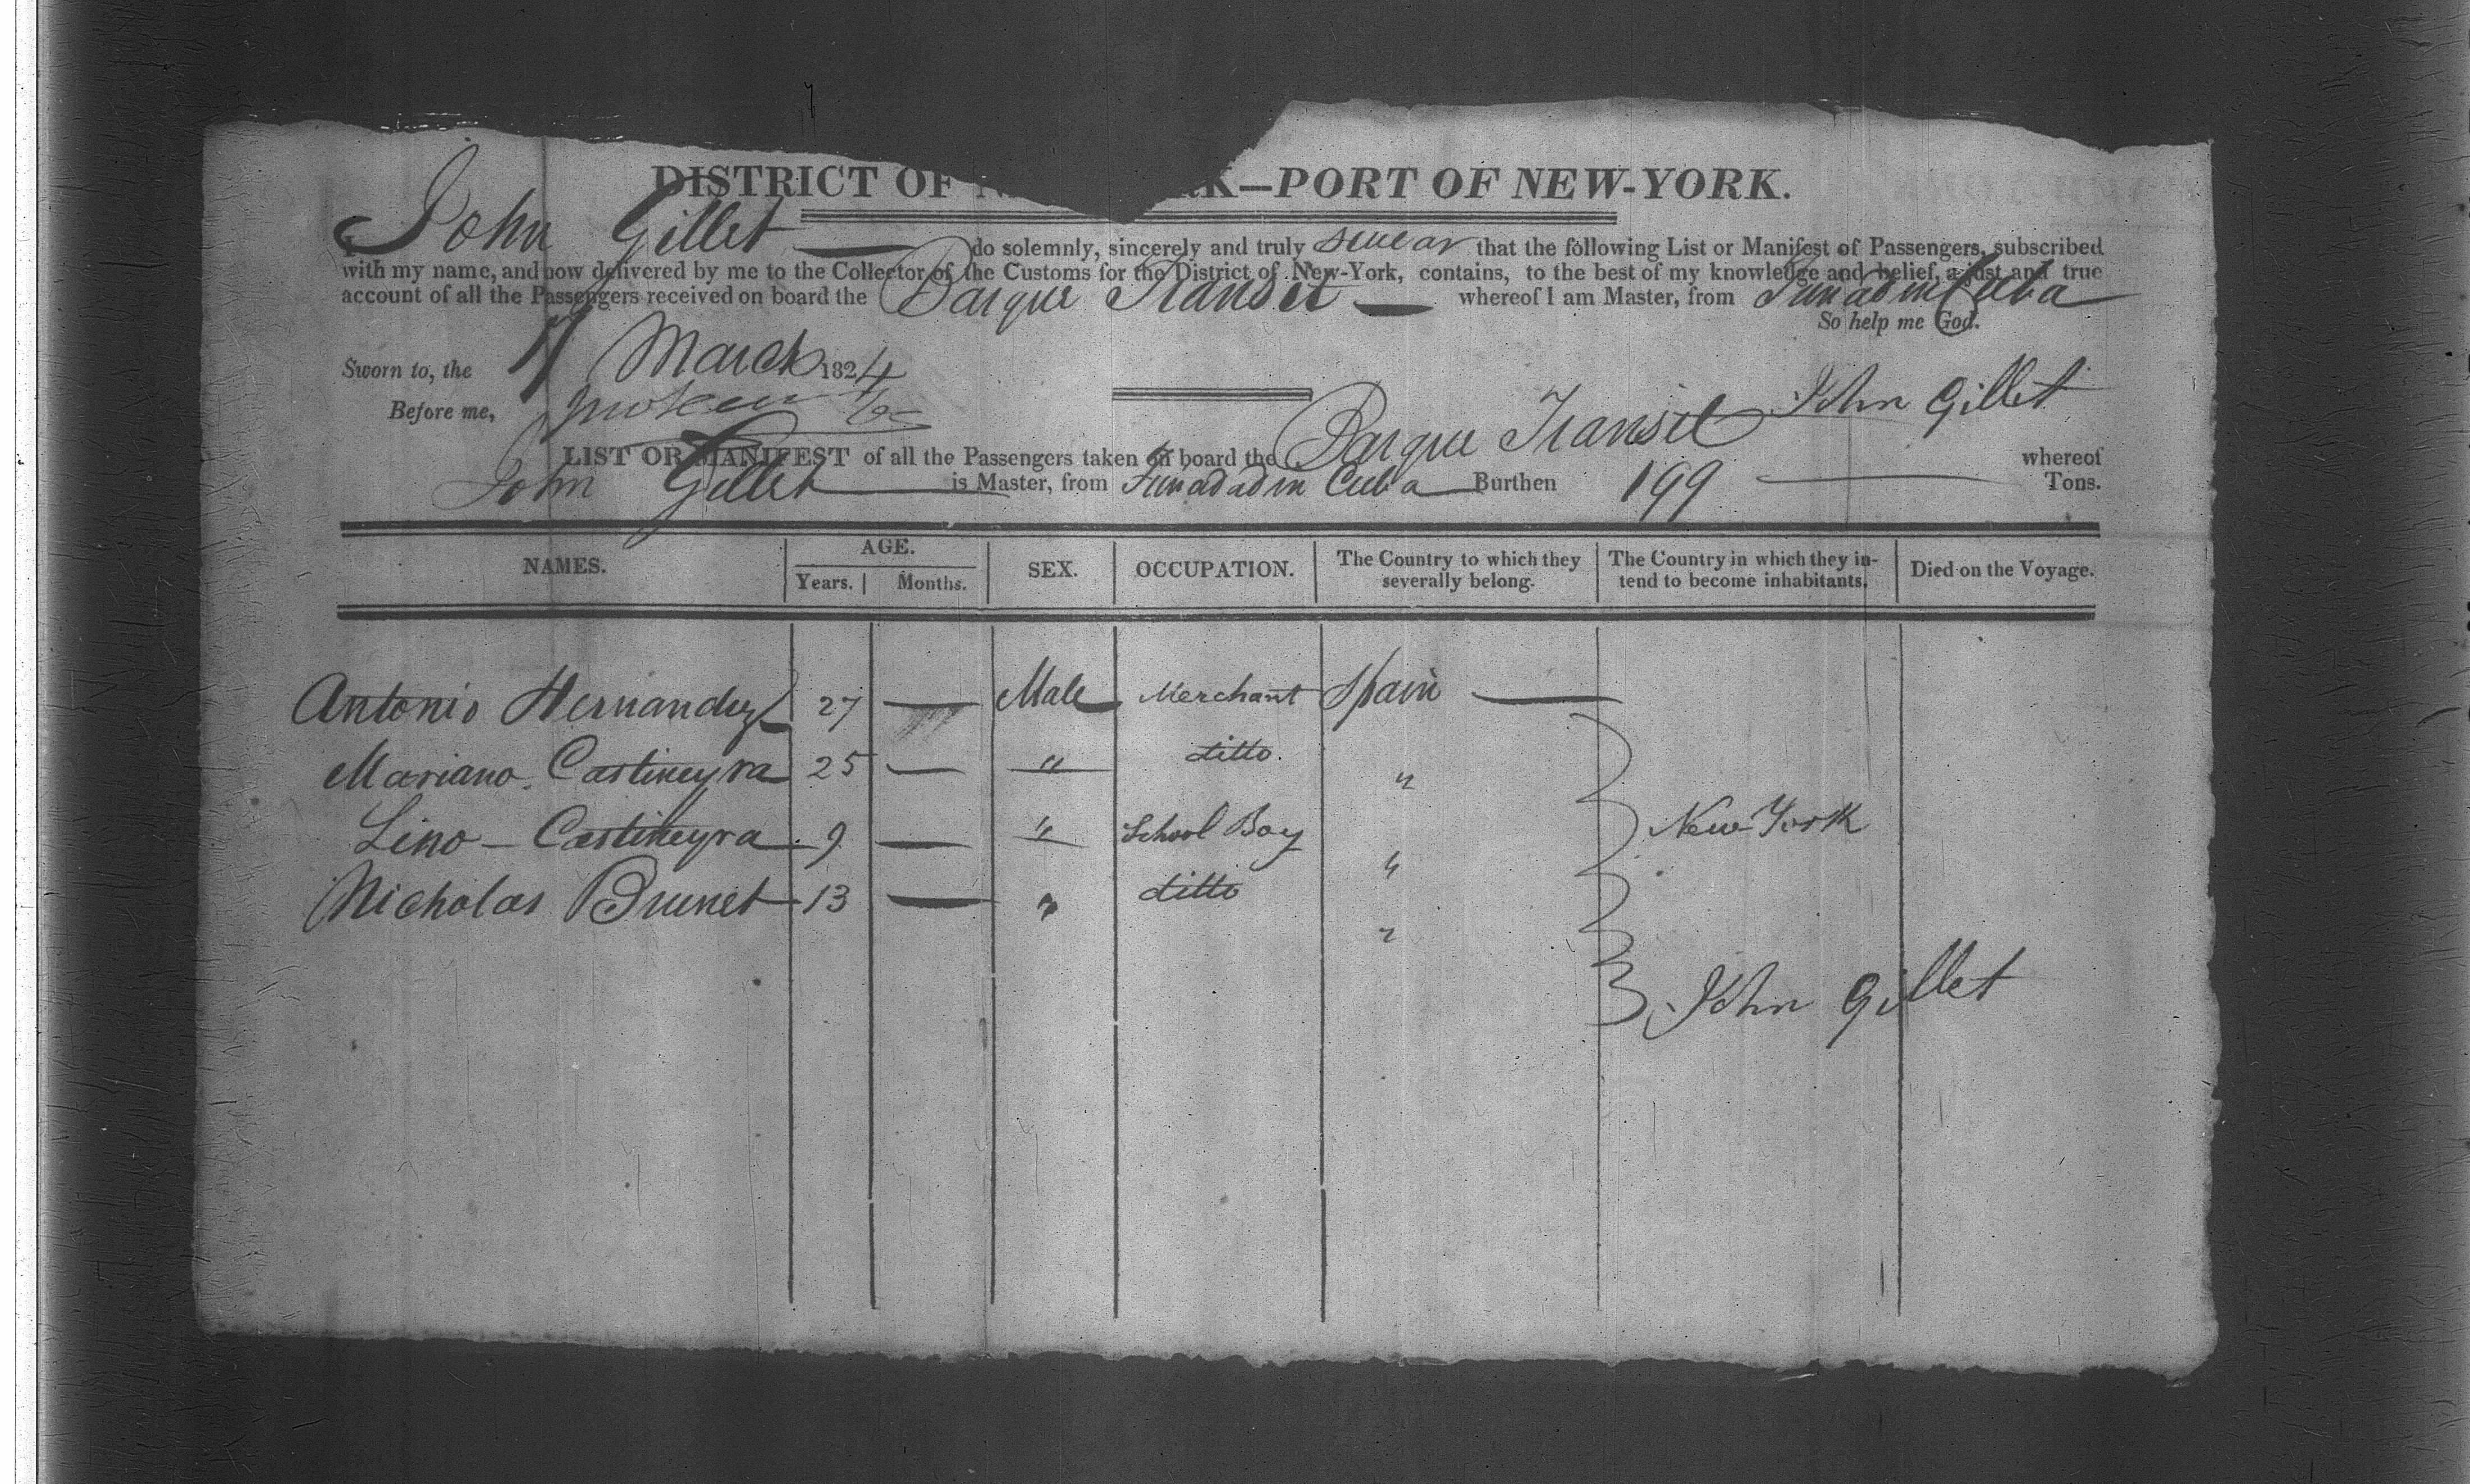 DISTRICT OF N RK—PORT OF NEW-YORK.
I, John Gillet do solemnly, sincerely and truly swear that the following List or Manifest of Passengers, subscribed
with my name, and now delivered by me to the Collector of the Customs for the District of New-York, contains, to the best of my knowledge and belief, a just and true
account of all the Passengers received on board the Barque Transit whereof I am Master, from Cuba
So help me God.
Sworn to, the March 1824
Before me,
John Gillet
LIST OR MANIFEST of all the Passengers taken on board the Barque Transit whereof
John Gillet is Master, from Cuba Burthen 199 Tons.
NAMES. AGE. Years. Months. SEX. OCCUPATION. The Country to which they severally belong. The Country in which they intend to become inhabitants. Died on the Voyage.
Antonio Hernandez 27 — Male Merchant Spain —
Mariano Castineyra 25 — " ditto. "
Lino — Castineyra 9 — " School Boy " New-York
Nicholas Brunet 13 — " ditto "
John Gillet